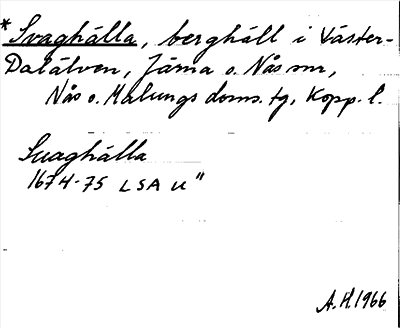 *Svaghälla, berghäll i Väster-
Dalälven, Järna o. Nås snr,
Nås o. Malungs doms. tg, Kopp. l.
Svaghälla
1674-75 LSA U"
A.H. 1966